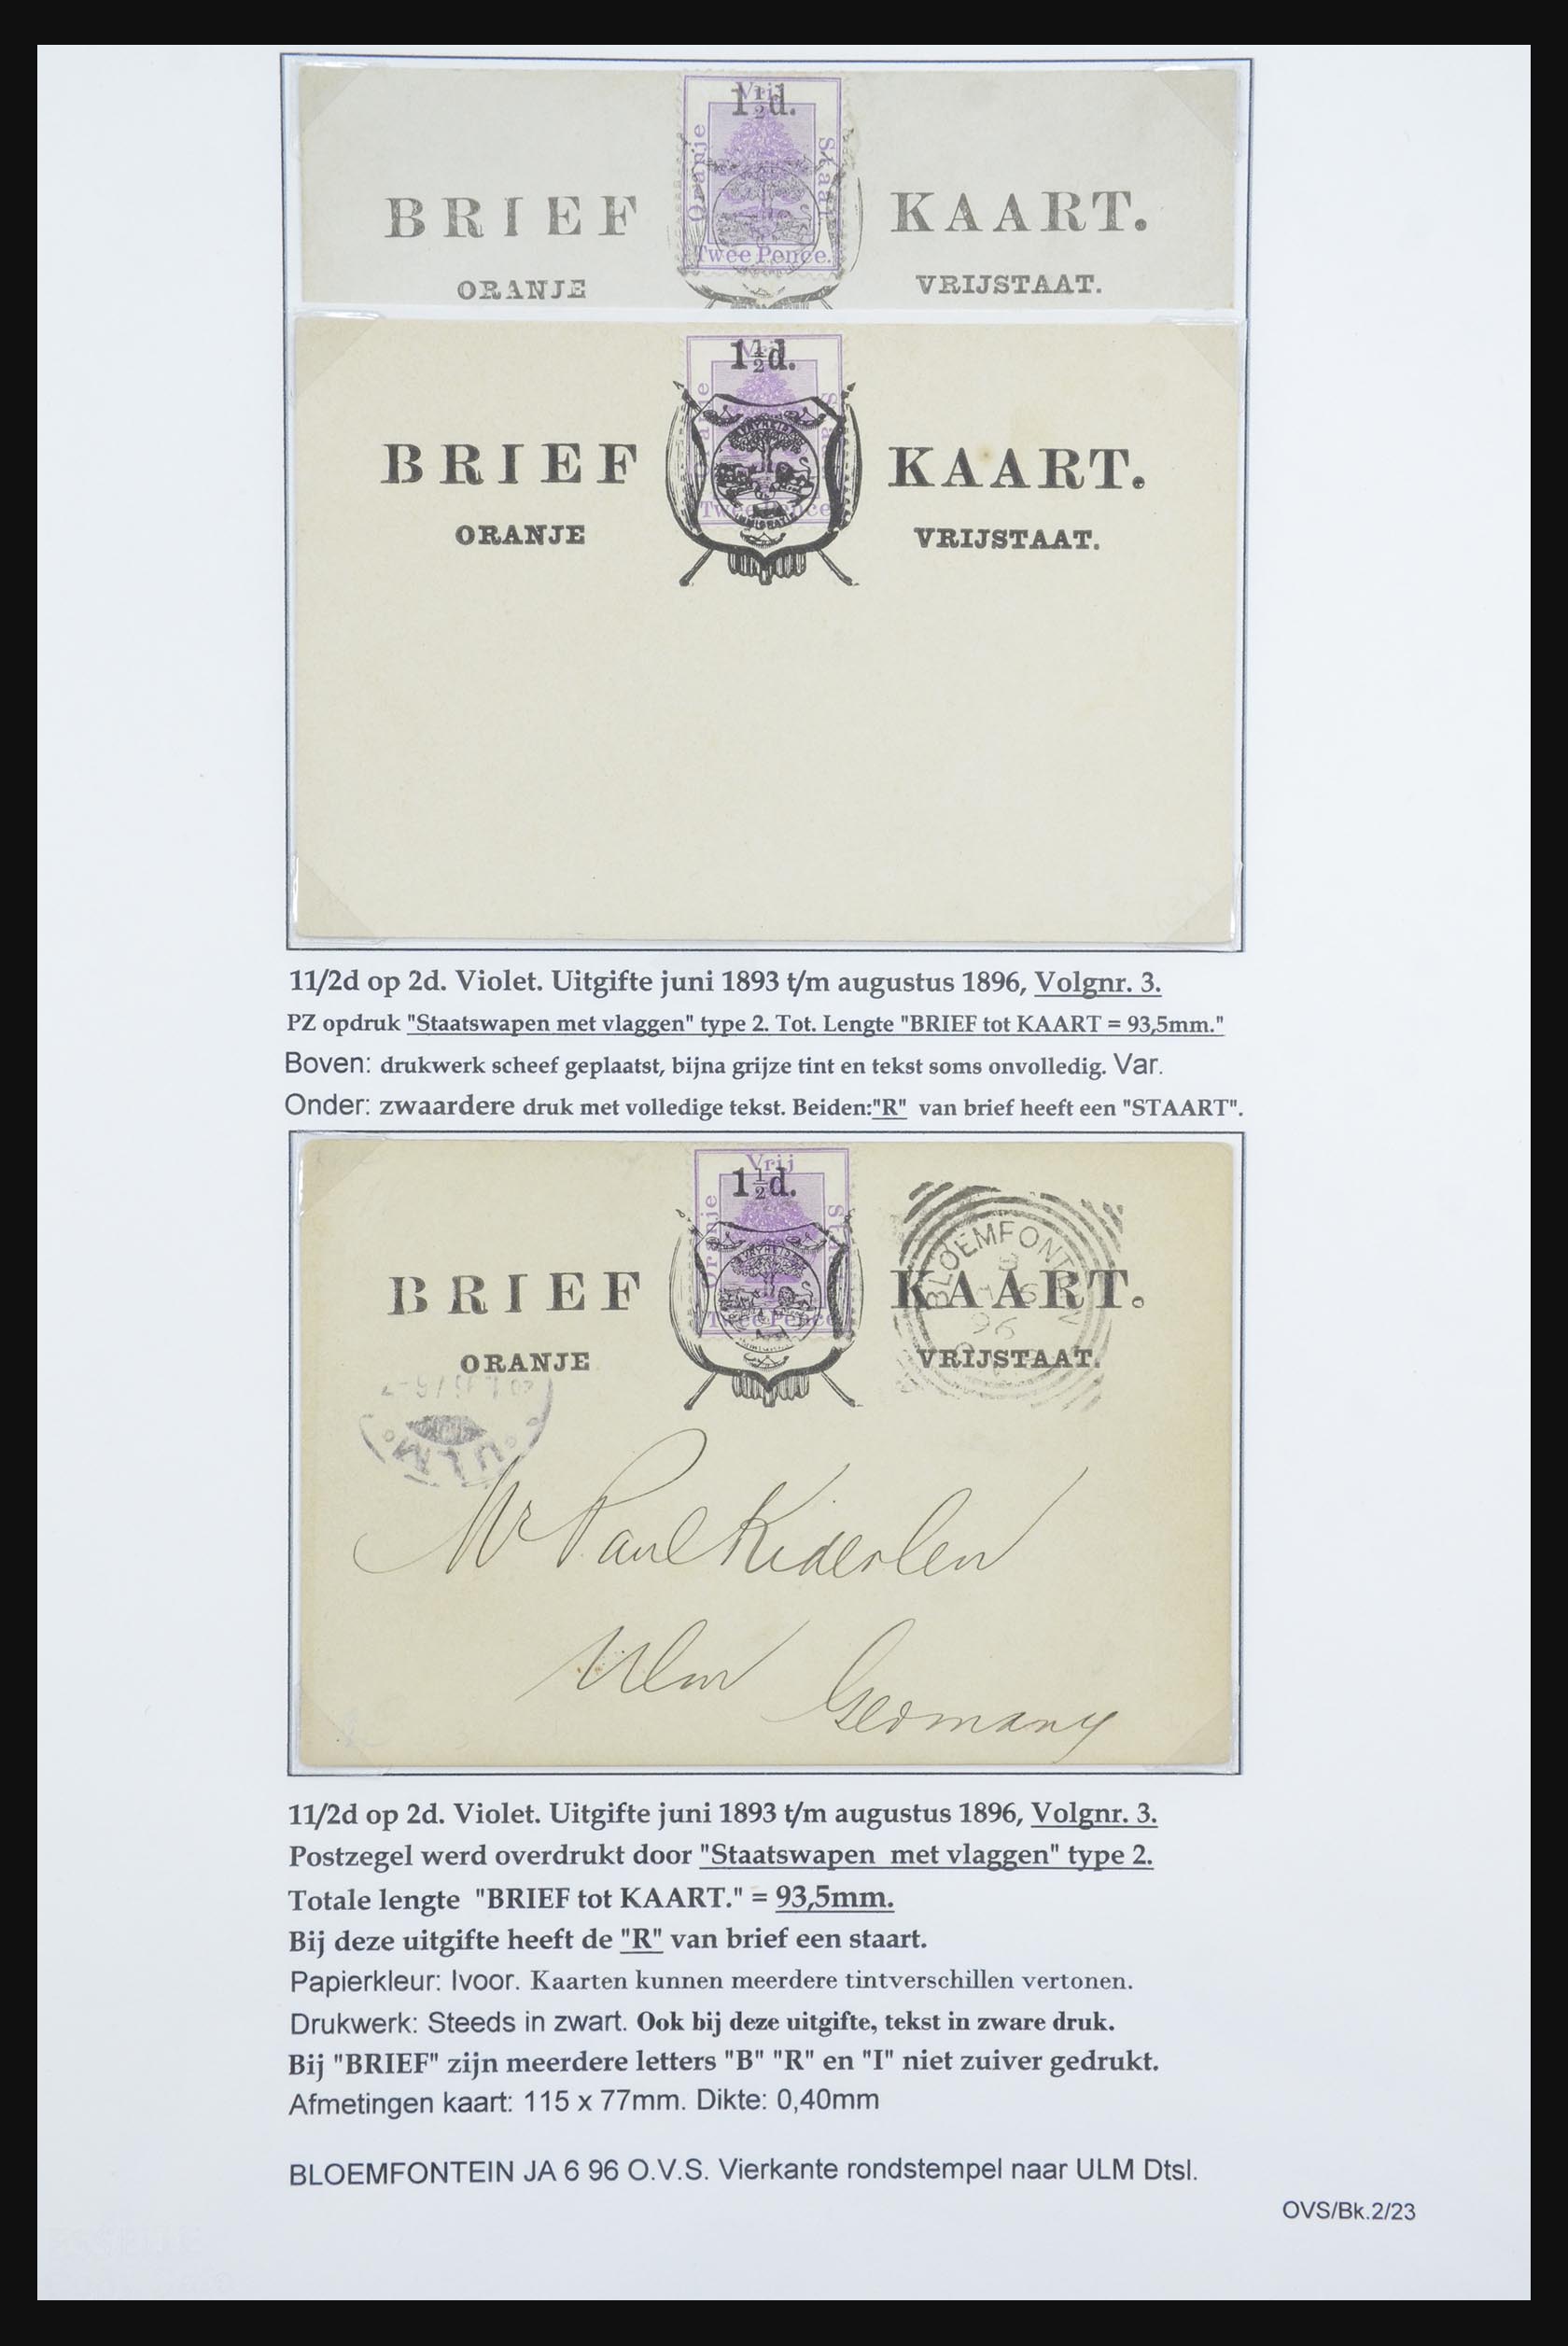 Vrij
1½d.
Oranje Staat
BRIEF KAART.
Twee Pence.
ORANJE VRIJSTAAT.
1½d.
VRYHEID
BRIEF KAART.
Twee Pence
IMMIGRATIE
ORANJE VRIJSTAAT.
11/2d op 2d. Violet. Uitgifte juni 1893 t/m augustus 1896, Volgnr. 3.
PZ opdruk "Staatswapen met vlaggen" type 2. Tot. Lengte "BRIEF tot KAART = 93,5mm."
Boven: drukwerk scheef geplaatst, bijna grijze tint en tekst soms onvolledig. Var.
Onder: zwaardere druk met volledige tekst. Beiden:"R" van brief heeft een "STAART".
Vrij
1½d.
Oranje
BLOEMFONTEIN
VRYHEID
BRIEF KAART.
96
Twee Pence
ORANJE VRIJSTAAT.
ULM
Mr Paul Kiderlen
Ulm
Germany
11/2d op 2d. Violet. Uitgifte juni 1893 t/m augustus 1896, Volgnr. 3.
Postzegel werd overdrukt door "Staatswapen met vlaggen" type 2.
Totale lengte "BRIEF tot KAART." = 93,5mm.
Bij deze uitgifte heeft de "R" van brief een staart.
Papierkleur: Ivoor. Kaarten kunnen meerdere tintverschillen vertonen.
Drukwerk: Steeds in zwart. Ook bij deze uitgifte, tekst in zware druk.
Bij "BRIEF" zijn meerdere letters "B" "R" en "I" niet zuiver gedrukt.
Afmetingen kaart: 115 x 77mm. Dikte: 0,40mm
BLOEMFONTEIN JA 6 96 O.V.S. Vierkante rondstempel naar ULM Dtsl.
OVS/Bk.2/23